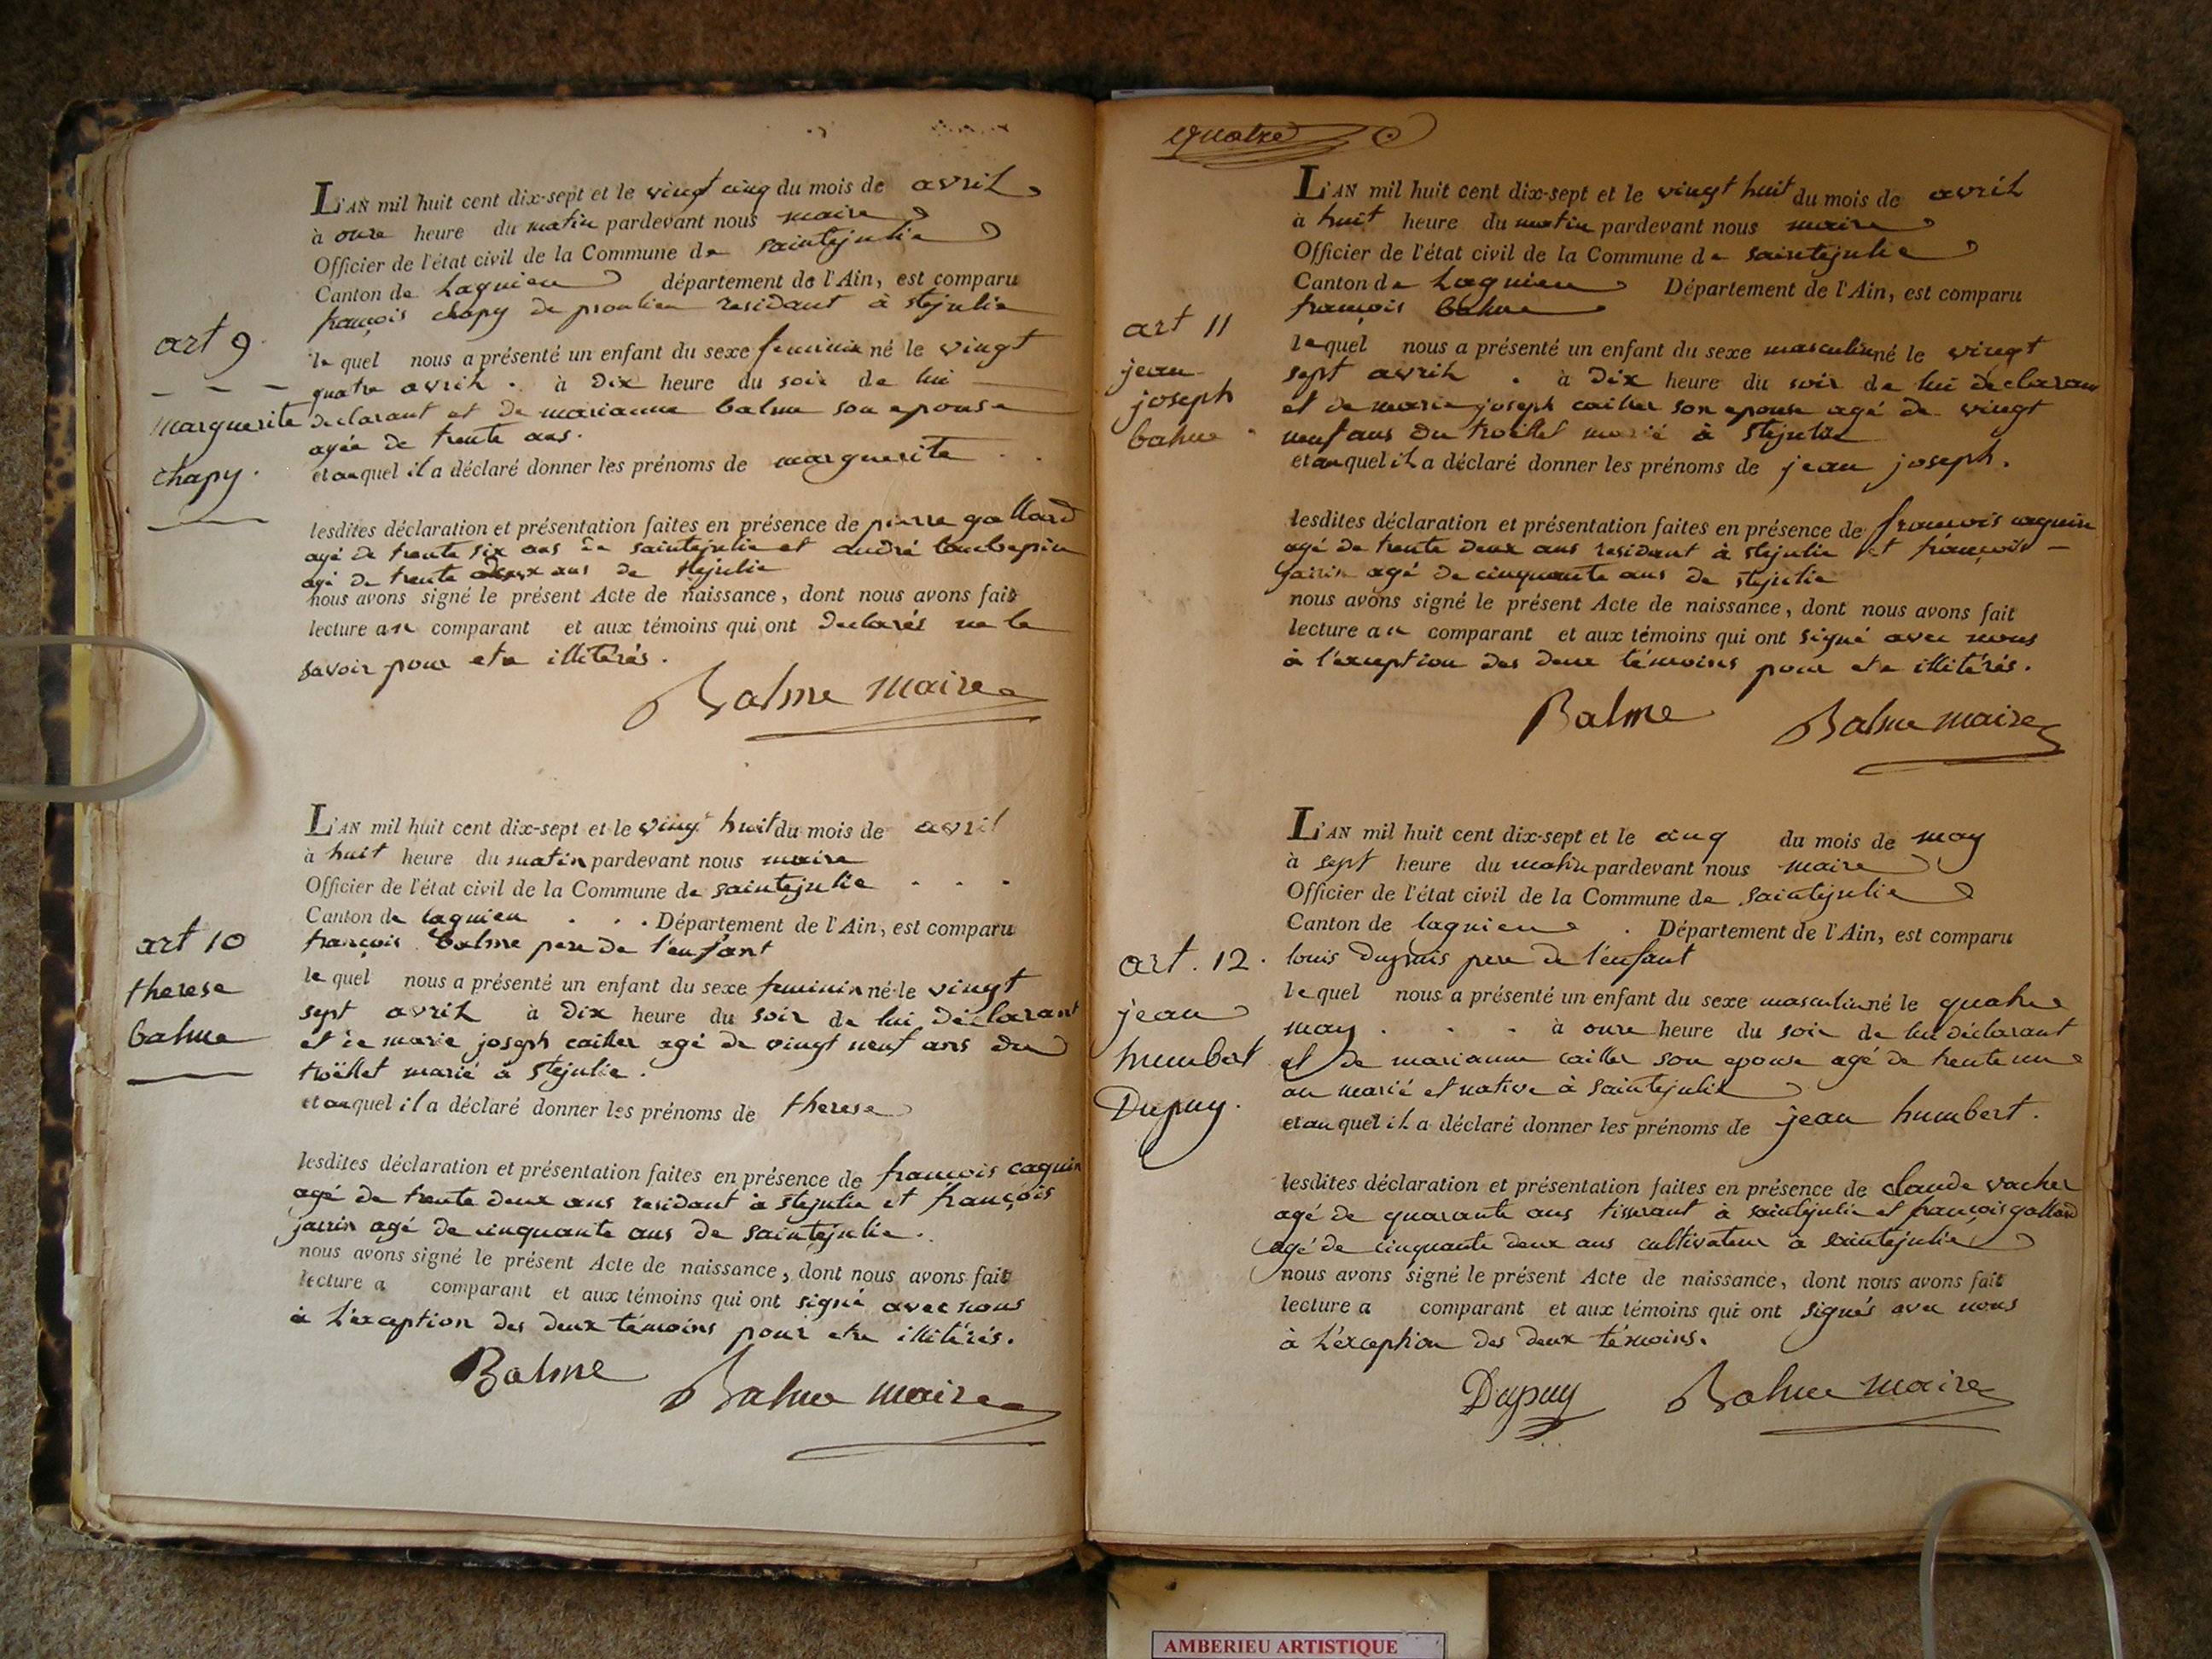 L'AN mil huit cent dix-sept et le vingt cinq du mois de avril
à onze heure du matin pardevant nous maire
Officier de l'état civil de la Commune de saintejulie
Canton de Lagnieu département de l'Ain, est comparu
françois chapy de proulieu residant à stejulie
art 9
marguerite
chapy.
le quel nous a présenté un enfant du sexe feminin né le vingt
quatre avril . à dix heure du soir de lui
declarant et de marianne balme son epouse
agée de trente ans.
et auquel il a déclaré donner les prénoms de marguerite
lesdites déclaration et présentation faites en présence de pierre gallard
agé de trente six ans de saintejulie et andré
agé de trente deux ans de stejulie
nous avons signé le présent Acte de naissance, dont nous avons fait
lecture au comparant et aux témoins qui ont declarés ne le
savoir pour etre illitérés.
Balme maire
L'AN mil huit cent dix-sept et le vingt huit du mois de avril
à huit heure du matin pardevant nous maire
Officier de l'état civil de la Commune de saintejulie . . .
Canton de lagnieu . . . Département de l'Ain, est comparu
françois balme pere de l'enfant
art 10
therese
balme
le quel nous a présenté un enfant du sexe feminin né le vingt
sept avril à dix heure du soir de lui déclarant
et de marie joseph cailler agé de vingt neuf ans du
troëllet marié à stejulie .
et auquel il a déclaré donner les prénoms de therese
lesdites déclaration et présentation faites en présence de francois caguin
agé de trente deux ans residant à stejulie et françois
jarrin agé de cinquante ans de saintejulie.
nous avons signé le présent Acte de naissance, dont nous avons fait
lecture a comparant et aux témoins qui ont signé avec nous
à l'exception des deux témoins pour etre illitérés.
Balme Balme maire
quatre
L'AN mil huit cent dix-sept et le vingt huit du mois de avril
à huit heure du matin pardevant nous maire
Officier de l'état civil de la Commune de saintejulie
Canton de Lagnieu Département de l'Ain, est comparu
françois balme
art 11
jean
joseph
balme
lequel nous a présenté un enfant du sexe masculin né le vingt
sept avril . à dix heure du soir de lui declarant
et de marie joseph cailler son epouse agé de vingt
neuf ans du troëllet marié à stejulie
et auquel il a déclaré donner les prénoms de jean joseph.
lesdites déclaration et présentation faites en présence de francois caguin
agé de trente deux ans residant à stejulie et françois
jarrin agé de cinquante ans de stejulie
nous avons signé le présent Acte de naissance, dont nous avons fait
lecture au comparant et aux témoins qui ont signé avec nous
à l'exception des deux témoins pour etre illitérés.
Balme Balme maire
L'AN mil huit cent dix-sept et le cinq du mois de may
à sept heure du matin pardevant nous maire
Officier de l'état civil de la Commune de saintejulie
Canton de lagnieu . Département de l'Ain, est comparu
louis pere de l'enfant
art. 12.
jean
humbert
Dupuy.
lequel nous a présenté un enfant du sexe masculin né le quatre
may . . . à onze heure du soir de lui déclarant
et de marianne cailler son epouse agé de trente une
an marié et native à saintejulie
et auquel il a déclaré donner les prénoms de jean humbert.
lesdites déclaration et présentation faites en présence de claude vacher
agé de quarante ans tisserant à saintejulie et françois gallard
agé de cinquante deux ans cultivateur à saintejulie
nous avons signé le présent Acte de naissance, dont nous avons fait
lecture a comparant et aux témoins qui ont signés avec nous
à l'exception des deux témoins.
Dupuy Balme maire
AMBERIEU ARTISTIQUE